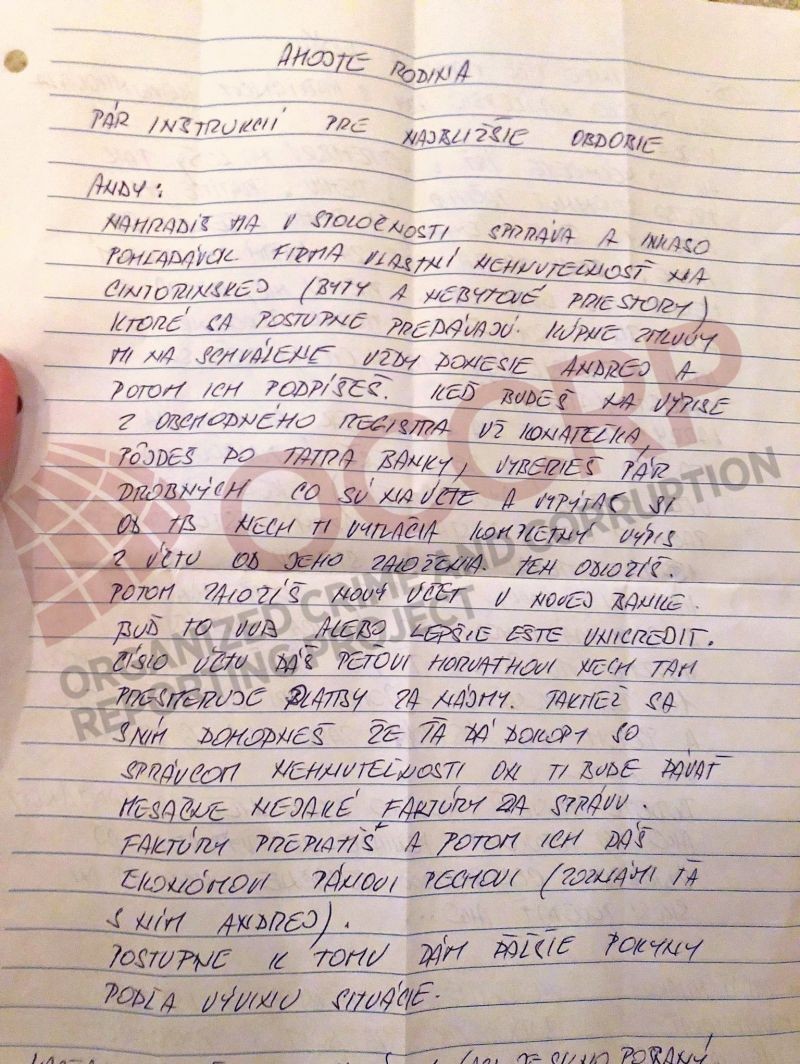 AHOJTE RODINA
PÁR INŠTRUKCIÍ PRE NAJBLIŽŠIE OBDOBIE
ANDY:
NAHRADÍŠ MA V SPOLOČNOSTI SPRÁVA A INKASO
POHĽADÁVOK FIRMA VLASTNÍ NEHNUTEĽNOSŤ NA
CINTORINSKEJ (BYTY A NEBYTOVÉ PRIESTORY)
KTORÉ SA POSTUPNE PREDÁVAJÚ. KÚPNE ZMLUVY
MI NA SCHVÁLENIE VŽDY DONESIE ANDREJ A
POTOM ICH PODPÍŠEŠ. KEĎ BUDEŠ NA VÝPISE
Z OBCHODNÉHO REGISTRA UŽ KONATEĽKA,
PÔJDEŠ DO TATRA BANKY, VYBERIEŠ PÁR
DROBNÝCH ČO SÚ NA ÚČTE A VYPÝTAŠ SI
OD TB NECH TI VYTLAČIA KOMPLETNÝ VÝPIS
Z ÚČTU OD JEHO ZALOŽENIA. TEN ODLOŽÍŠ.
POTOM ZALOŽÍŠ NOVÝ ÚČET V NOVEJ BANKE.
BUĎ TO VUB ALEBO LEPŠIE EŠTE UNICREDIT.
ČÍSLO ÚČTU DÁŠ PEŤOVI HORVATHOVI NECH TAM
PRESMERUJE PLATBY ZA NÁJMY. TAKTIEŽ SA
S NÍM DOHODNEŠ ŽE ŤA DÁ DOKOPY SO
SPRÁVCOM NEHNUTEĽNOSTI ON TI BUDE DÁVAŤ
MESAČNE NEJAKÉ FAKTÚRY ZA SPRÁVU.
FAKTÚRY PREPLATÍŠ A POTOM ICH DÁŠ
EKONÓMOVI PÁNOVI PECHOVI (ZOZNÁMI ŤA
S NÍM ANDREJ).
POSTUPNE K TOMU DÁM ĎALŠIE POKYNY
PODĽA VÝVINU SITUÁCIE.
OCCRP
ORGANIZED CRIME AND CORRUPTION
REPORTING PROJECT